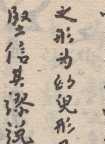 之形为的兒形
堅信其謬説